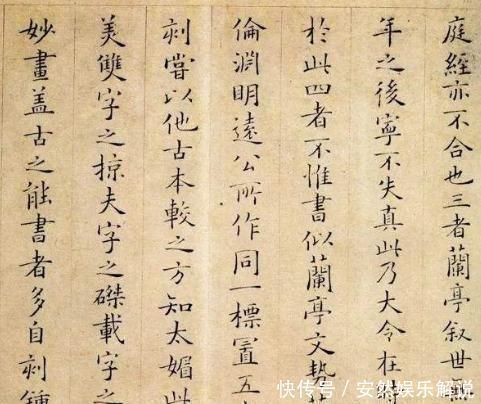 庭經亦不合也三者蘭亭叙世
年之後寧不失真此乃大令在
於此四者不惟書似蘭亭文勢
倫淵明遠公所作同一標置五
刻嘗以他古本較之方知太媚此
美雙字之掠夫字之磔載字之
妙畫盖古之能書者多自刻鍾
快传号/安然娱乐解说